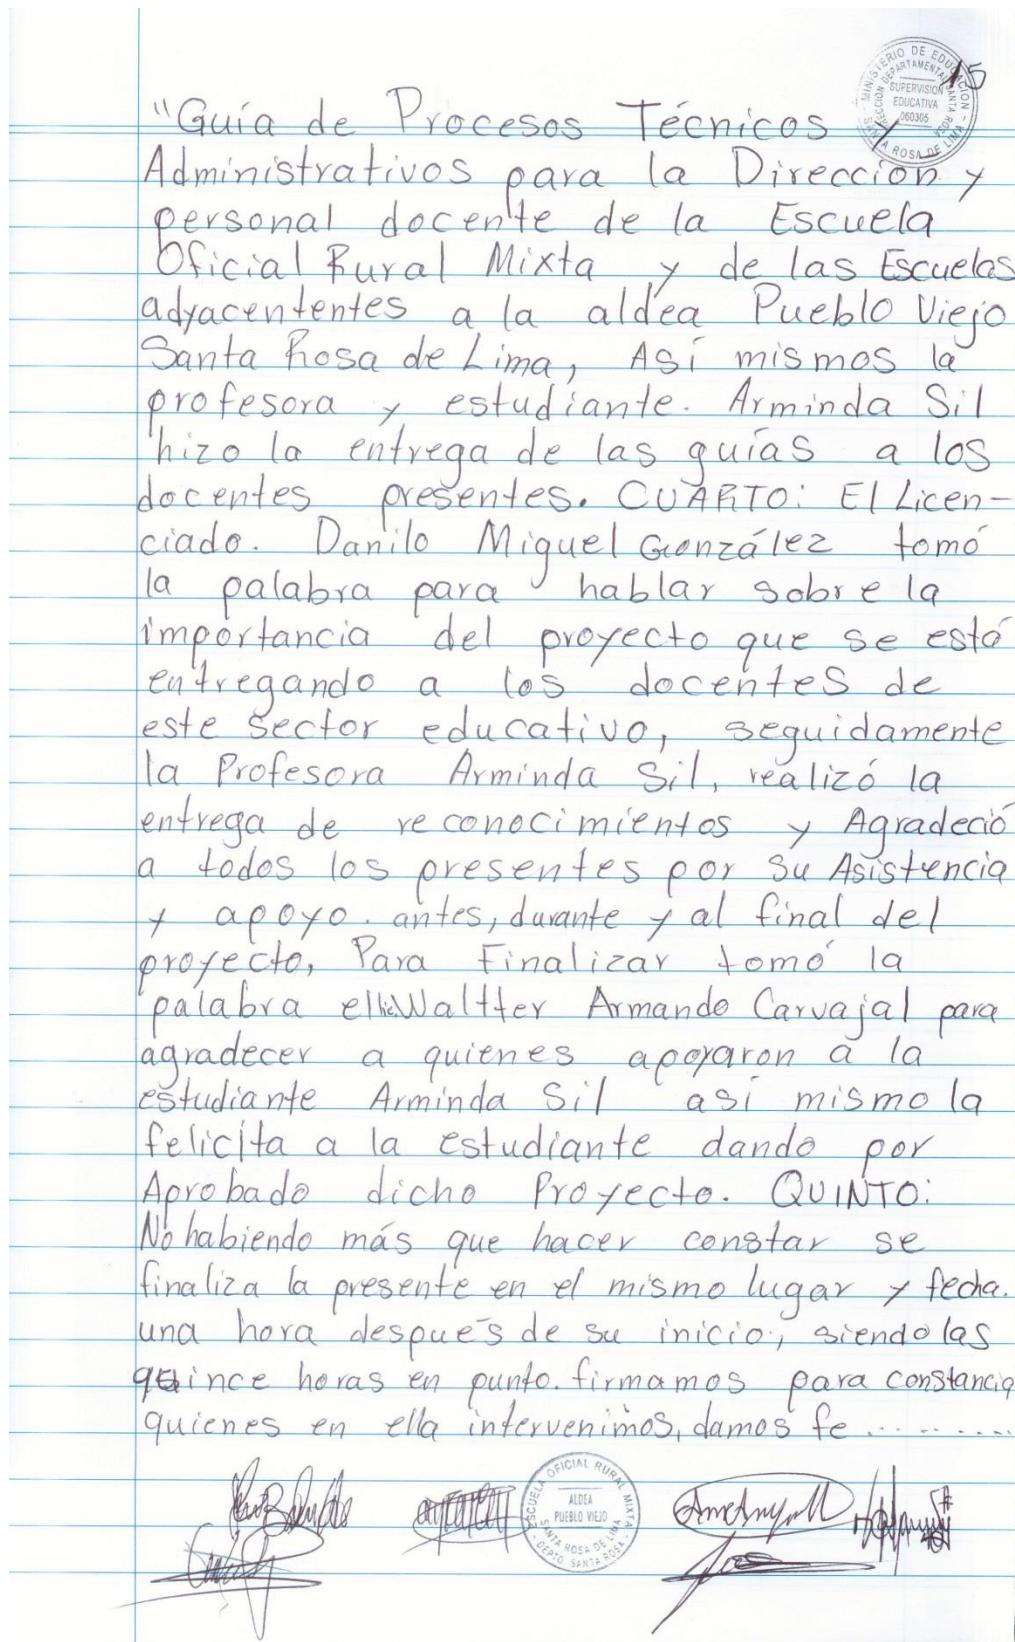 15
MINISTERIO DE EDUCACION
DIRECCION DEPARTAMENTAL SANTA ROSA
SUPERVISION
EDUCATIVA
060305
SANTA ROSA DE LIMA
"Guía de Procesos Técnicos y
Administrativos para la Dirección y
personal docente de la Escuela
Oficial Rural Mixta y de las Escuelas
adyacententes a la aldea Pueblo Viejo
Santa Rosa de Lima, Así mismos la
profesora y estudiante. Arminda Sil
hizo la entrega de las guías a los
docentes presentes. CUARTO: El Licen-
ciado. Danilo Miguel González tomó
la palabra para hablar sobre la
importancia del proyecto que se está
entregando a los docentes de
este sector educativo, seguidamente
la Profesora Arminda Sil, realizó la
entrega de reconocimientos y Agradeció
a todos los presentes por su Asistencia
y apoyo. antes, durante y al final del
proyecto, Para Finalizar tomó la
palabra el lic. Waltter Armando Carvajal para
agradecer a quienes apoyaron a la
estudiante Arminda Sil así mismo la
felicita a la estudiante dando por
Aprobado dicho Proyecto. QUINTO:
No habiendo más que hacer constar se
finaliza la presente en el mismo lugar y fecha.
una hora después de su inicio, siendo las
quince horas en punto. firmamos para constancia
quienes en ella intervenimos, damos fe ..........
ESCUELA OFICIAL RURAL MIXTA
ALDEA
PUEBLO VIEJO
SANTA ROSA DE LIMA
DEPTO. SANTA ROSA